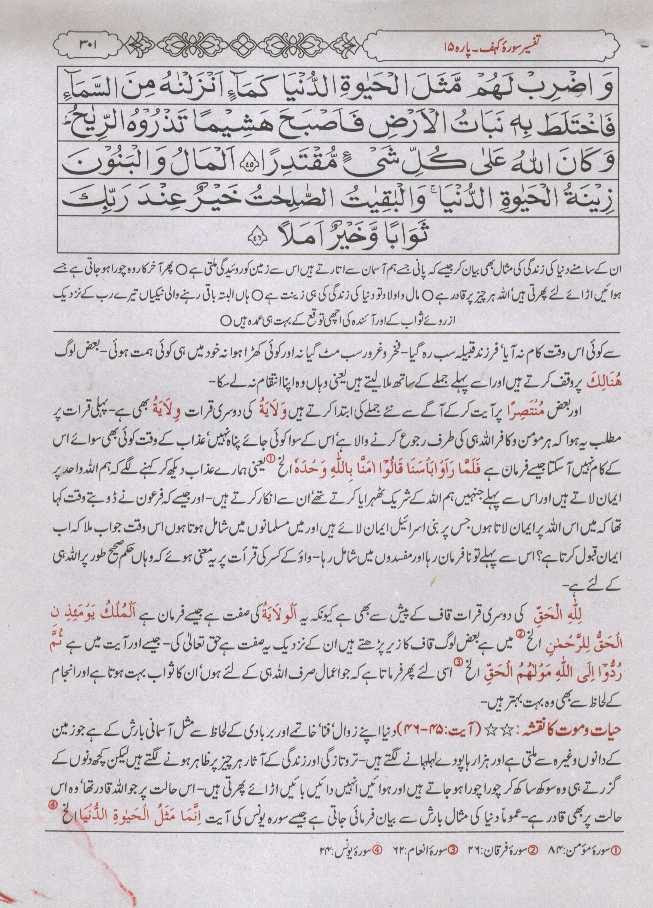 تفسیر سورۂ کہف۔ پارہ ۱۵
۳۰۱
وَاضْرِبْ لَهُمْ مَّثَلَ الْحَيٰوةِ الدُّنْيَا كَمَآءٍ اَنْزَلْنٰهُ مِنَ السَّمَآءِ
فَاخْتَلَطَ بِهٖ نَبَاتُ الْاَرْضِ فَاَصْبَحَ هَشِيْمًا تَذْرُوْهُ الرِّيٰحُ ؕ
وَكَانَ اللّٰهُ عَلٰى كُلِّ شَیْءٍ مُّقْتَدِرًا ﴿۴۵﴾ اَلْمَالُ وَالْبَنُوْنَ
زِيْنَةُ الْحَيٰوةِ الدُّنْيَا ۚ وَالْبٰقِيٰتُ الصّٰلِحٰتُ خَيْرٌ عِنْدَ رَبِّكَ
ثَوَابًا وَّخَيْرٌ اَمَلًا ﴿۴۶﴾
ان کے سامنے دنیا کی زندگی کی مثال بھی بیان کر جیسے کہ پانی جسے ہم آسمان سے اتارتے ہیں اس سے زمین کو روئیدگی ملتی ہے ○ پھر آخر کار وہ چورا ہو جاتی ہے جسے
ہوائیں اڑائے لئے پھرتی ہیں' اللہ ہر چیز پر قادر ہے ○ مال و اولاد تو دنیا کی زندگی کی ہی زینت ہے ○ ہاں البتہ باقی رہنے والی نیکیاں تیرے رب کے نزدیک
از روئے ثواب کے اور آئندہ کی اچھی توقع کے بہت ہی عمدہ ہیں ○
سے کوئی اس وقت کام نہ آیا' فرزند قبیلہ سب رہ گیا- فخر و غرور سب مٹ گیا نہ اور کوئی کھڑا ہوا نہ خود میں ہی کوئی ہمت ہوئی- بعض لوگ
هُنَالِكَ پر وقف کرتے ہیں اور اسے پہلے جملے کے ساتھ ملا لیتے ہیں یعنی وہاں وہ اپنا انتقام نہ لے سکا-
اور بعض مُنْتَصِرًا پر آیت کر کے آگے سے نئے جملے کی ابتدا کرتے ہیں وَلَايَةُ کی دوسری قرات وِلَايَةُ بھی ہے- پہلی قرات پر
مطلب یہ ہوا کہ ہر مومن و کافر اللہ ہی کی طرف رجوع کرنے والا ہے' اس کے سوا کوئی جائے پناہ نہیں' عذاب کے وقت کوئی بھی سوائے اس
کے کام نہیں آ سکتا جیسے فرمان ہے فَلَمَّا رَاَوْا بَاْسَنَا قَالُوْٓا اٰمَنَّا بِاللّٰهِ وَحْدَهٗ الخ ① یعنی ہمارے عذاب دیکھ کر کہنے لگے کہ ہم اللہ واحد پر
ایمان لاتے ہیں اور اس سے پہلے جنہیں ہم اللہ کے شریک ٹھہرایا کرتے تھے' ان سے انکار کرتے ہیں- اور جیسے کہ فرعون نے ڈوبتے وقت کہا
تھا کہ میں اس اللہ پر ایمان لاتا ہوں' جس پر بنی اسرائیل ایمان لائے ہیں اور میں مسلمانوں میں شامل ہوتا ہوں اس وقت جواب ملا کہ اب
ایمان قبول کرتا ہے؟ اس سے پہلے تو نافرمان رہا اور مفسدوں میں شامل رہا- واؤ کے کسر کی قرأت پر یہ معنی ہوئے کہ وہاں حکم صحیح طور پر اللہ ہی
کے لئے ہے-
لِلّٰهِ الْحَقِّ کی دوسری قرات قاف کے پیش سے بھی ہے کیونکہ یہ اَلْوَلَايَةُ کی صفت ہے جیسے فرمان ہے اَلْمُلْكُ يَوْمَئِذِ نِ
الْحَقُّ لِلرَّحْمٰنِ الخ ② میں ہے بعض لوگ قاف کا زیر پڑھتے ہیں ان کے نزدیک یہ صفت ہے حق تعالیٰ کی- جیسے اور آیت میں ہے ثُمَّ
رُدُّوْٓا اِلَى اللّٰهِ مَوْلٰهُمُ الْحَقِّ الخ ③ اسی لئے پھر فرماتا ہے کہ جو اعمال صرف اللہ ہی کے لئے ہوں' ان کا ثواب بہت ہوتا ہے اور انجام
کے لحاظ سے بھی وہ بہت بہتر ہیں-
حیات و موت کا نقشہ: ☆☆ (آیت: ۴۵-۴۶) دنیا اپنے زوال' فنا' خاتمے اور بربادی کے لحاظ سے مثل آسمانی بارش کے ہے جو زمین
کے دانوں وغیرہ سے ملتی ہے اور ہزارہا پودے لہلہانے لگتے ہیں- ترو تازگی اور زندگی کے آثار ہر چیز پر ظاہر ہونے لگتے ہیں لیکن کچھ دنوں کے
گزرتے ہی وہ سوکھ ساکھ کر چورا چورا ہو جاتے ہیں اور ہوائیں انہیں دائیں بائیں اڑائے پھرتی ہیں- اس حالت پر جو اللہ قادر تھا' وہ اس
حالت پر بھی قادر ہے- عموماً دنیا کی مثال بارش سے بیان فرمائی جاتی ہے جیسے سورہ یونس کی آیت اِنَّمَا مَثَلُ الْحَيٰوةِ الدُّنْيَا الخ ④
① سورۂ مومن: ۸۴ ② سورۂ فرقان: ۲۶ ③ سورۂ انعام: ۶۲ ④ سورۂ یونس: ۲۴